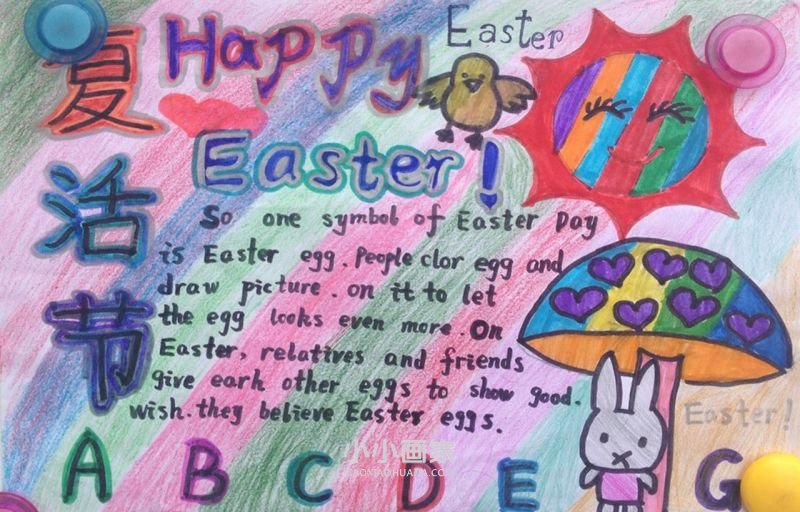 复活节
Happy
Easter
Easter!
So one symbol of Easter Day
is Easter egg. People clor egg and
draw picture. on it to let
the egg looks even more. On
Easter, relatives and friends
give earh other eggs to show good.
wish. they believe Easter eggs.
Easter!
A B C D E G